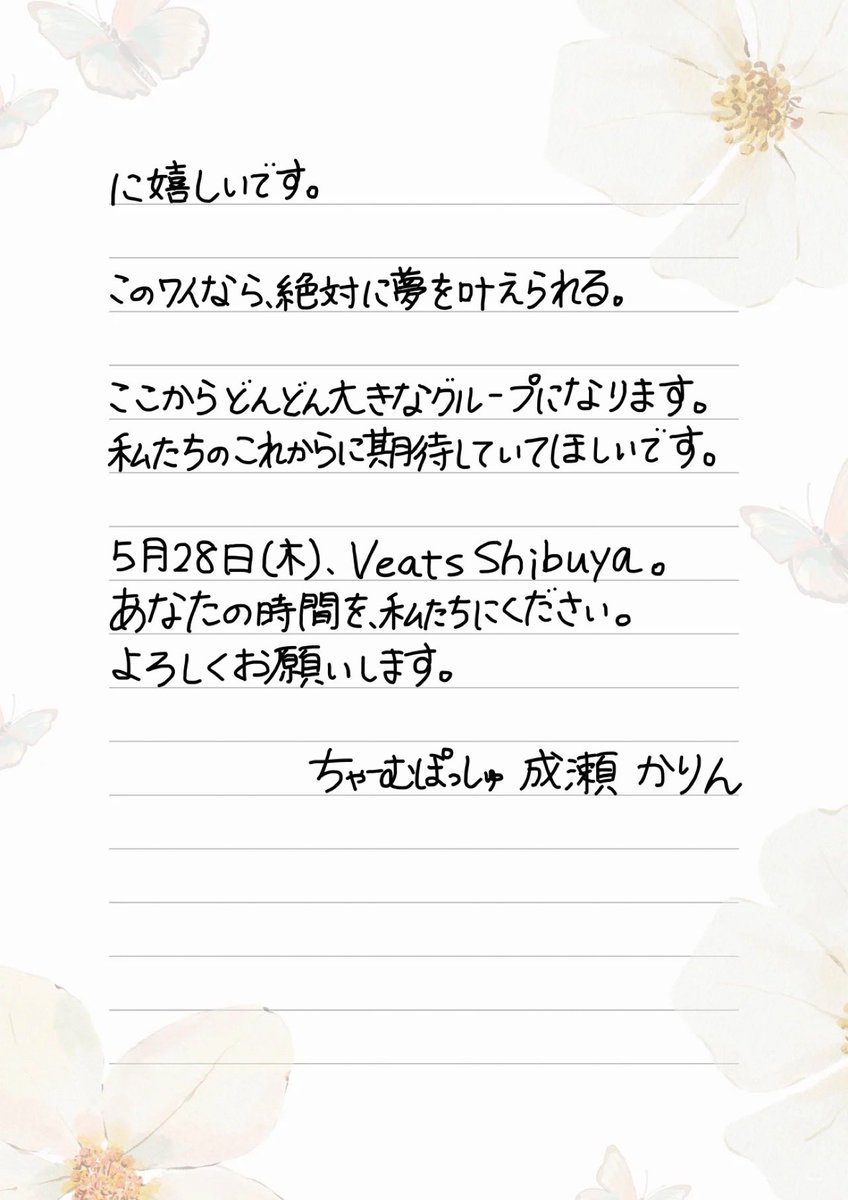 に嬉しいです。
このワイなら、絶対に夢を叶えられる。
ここからどんどん大きなグループになります。
私たちのこれからに期待していてほしいです。
5月28日(木)、Veats Shibuya。
あなたの時間を、私たちにください。
よろしくお願いします。
ちゃーむぽっしゅ 成瀬 かりん